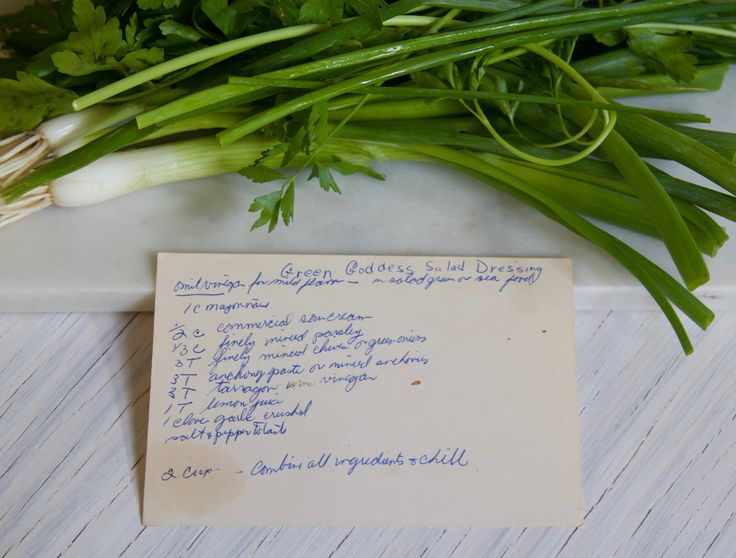 Green Goddess Salad Dressing
omit vinegar for mild flavor - on salad green or sea food
1 c mayonnaise
1/2 c commercial sour cream
1/3 c finely minced parsley
3 T finely minced chives or green onions
3 T anchovy paste or minced anchovies
3 T tarragon wine vinegar
1 T lemon juice
1 clove garlic crushed
salt & pepper to taste
2 cup - Combine all ingredients & chill